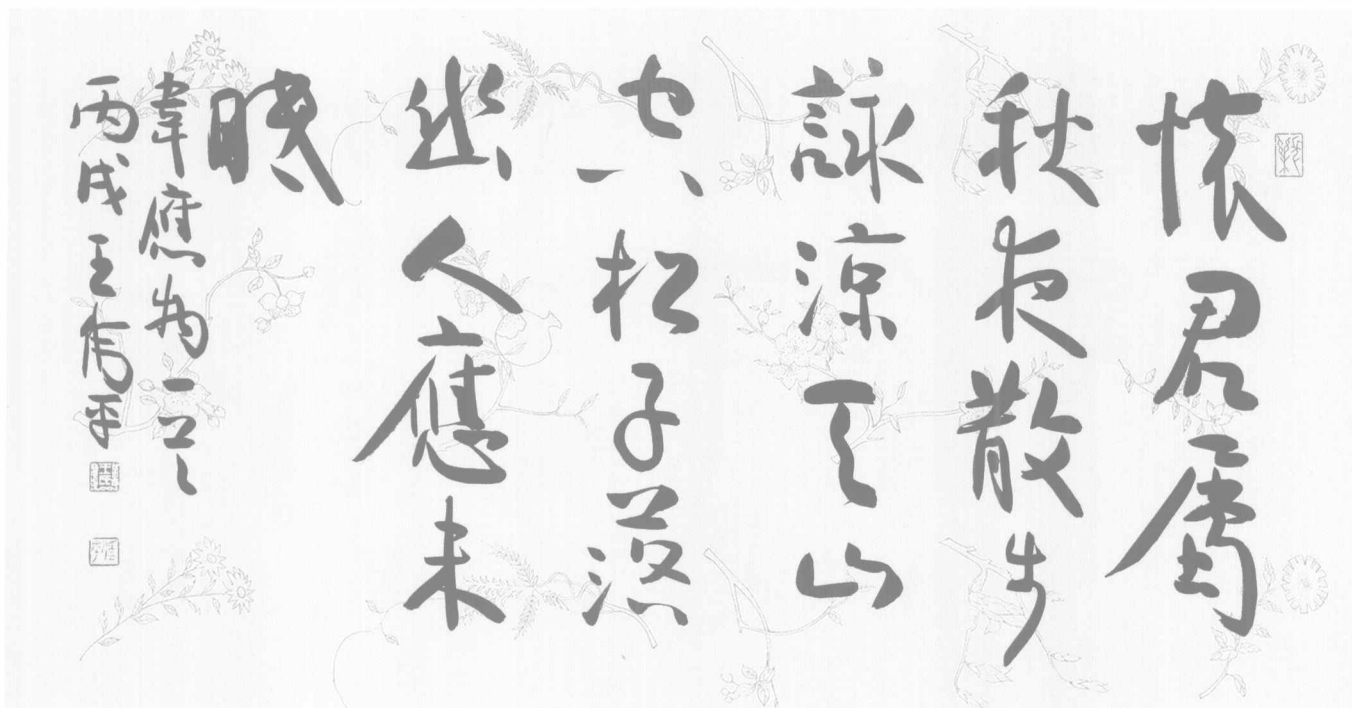 懷君屬
秋夜散步
詠涼天山
空松子落
幽人應未
眠
韋應物
丙戌王平